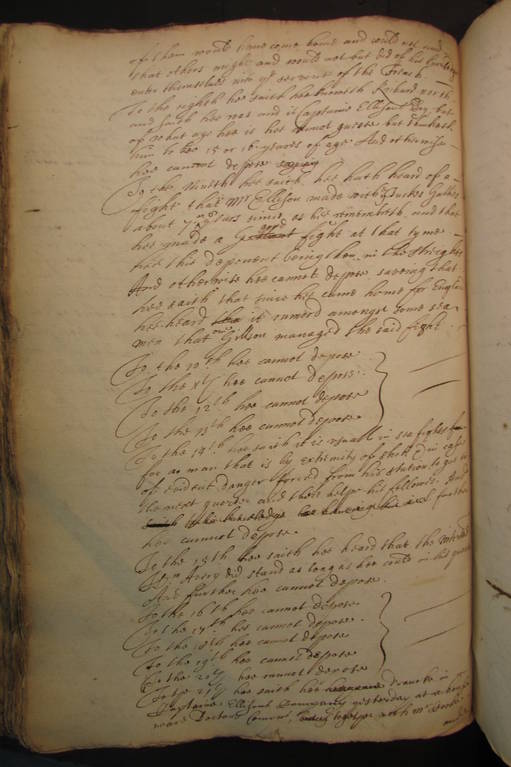 of them would have come home and could not and
that others might and would not but did of his
enter themselves into ye service of the French
To the eighth hee saith hee knoweth Richard
and saith hee was and is Captaine Ellisons Boy, but
of what age hee is hee cannot guesse but
him to bee 15 or 16 yeares of age And otherwise
hee cannot depose saving
To the Nineth hee saith, hee hath heard of a
fight that Mr Ellison made with Turkes Gallies
about 7 yeares since, as hee remembreth, and that
hee made a good fight at that tyme
this deponent being then in the Streights
And otherwise hee cannot depose saveing that
hee saith that since hee came home for England
hee heard it rumord amongst some sea
men that one Gillson managed the said fight.
To the 10th hee cannot depose
To the xjth hee cannot depose
To the 12th hee cannot depose
To the 13th hee cannot depose
To the 14th hee saith it is usuall in sea fights
for a man that is by extremity of shott in case
of evident danger forced from his station to goe to
the next quarter and there helpe his fellowes. And
further
hee cannot depose.
To the 15th hee saith hee heard that the
did stand as long as hee could in his quarter
And further hee cannot depose.
To the 16th hee cannot depose
To the 17th hee cannot depose.
To the 18th hee cannot depose
To the 19th hee cannot depose
To the 20th hee cannot depose
To the 21th hee saith hee dranke in
Captaine Ellisons Company yesterday at a house
neare Doctors Comons, together with Mr